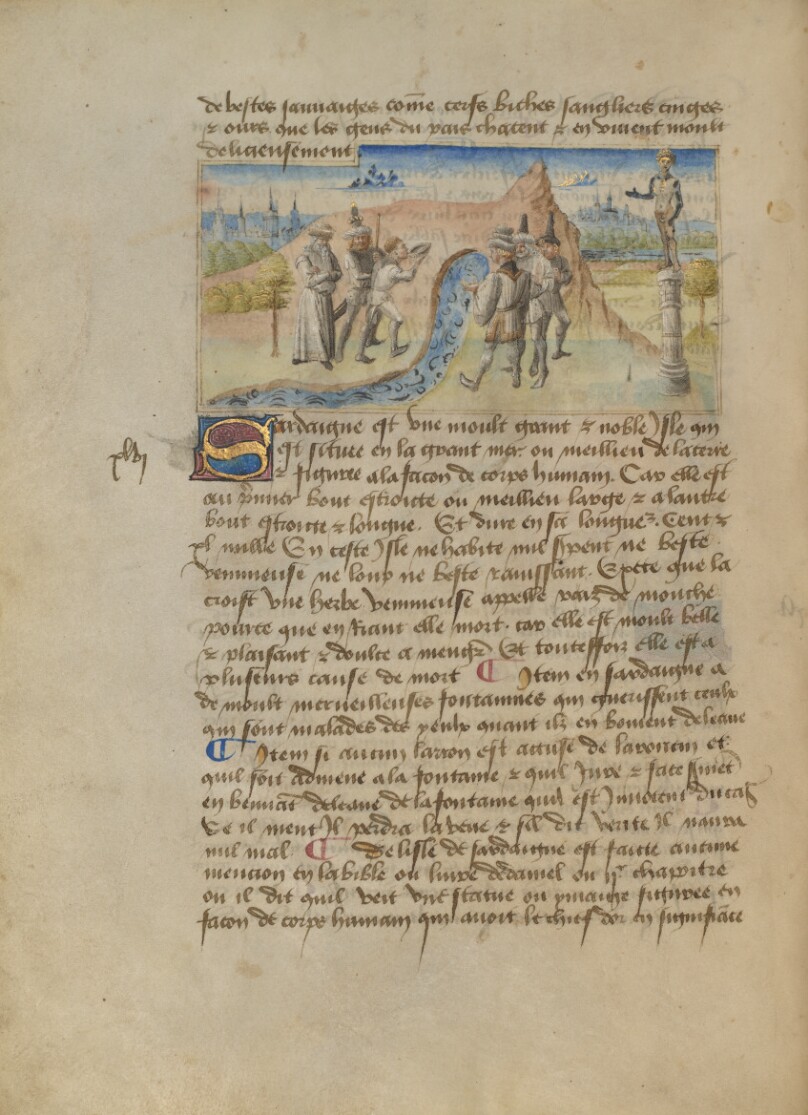 de bestes sauvaiges cōme cerfs biches sangliers cinges
⁊ ours que les gens du pais chacent ⁊ en vivent moult
delicieusement
Sardaigne est vne moult grant ⁊ noble Isle qui
est situee en la grant mer ou meillieu de la terre
⁊ figuree a la facon de corps humain. Car elle est
au p̄mier bout estroicte ou meillieu large ⁊ a lautre
bout estroicte ⁊ longue. Et dure en sa longue². Cent ⁊
xlvj
xl mille En ceste Isle ne habite nul s̄pent ne beste
venimeuse ne loup ne beste rauissant. Excepte que la
croist vne herbe venimeuse appelle de mouche
pource que en Riant elle mort. car elle est moult belle
⁊ plaisant ⁊ doulce a menḡr Et touteffoiz elle est a
plusieurs cause de mort ¶ Item en sardaigne a
de moult merueilleuses fontainnes qui guerissent ceulx
qui sont malades des yeulx quant ilz en boiuent de leaue
¶ Item si aucun larron est accuse de larrecin et
quil soit admene a la fontaine ⁊ quil Jure ⁊ face s̄met
en beuuāt de leaue de la fontaine quil est Innocent du cas
Se il ment Il perdra la veue ⁊ sil dit verite Il naura
nul mal ¶ De lisle de sardaigne est faicte aucune
mencion en la bible ou liure de daniel ou ijᵉ chapitre
ou il dit quil veit vne statue ou ymaige figuree en
facon de corps humain qui auoit le chief dor en signifiāce